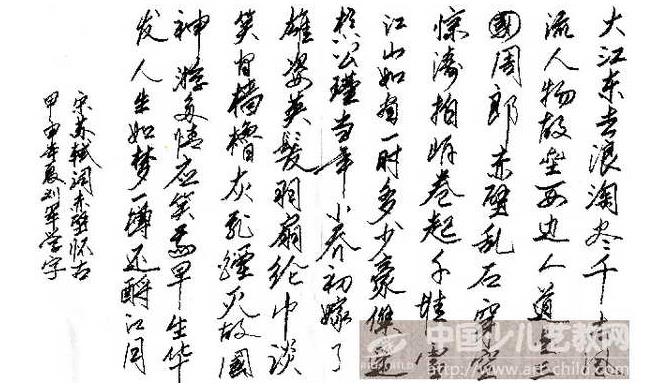 大江东去浪淘尽千古风
流人物故垒西边人道是三
國周郎赤壁乱石穿空
惊涛拍岸卷起千堆雪
江山如画一时多少豪傑遥
想公瑾当年小乔初嫁了
雄姿英髮羽扇纶巾谈
笑间樯櫓灰飞煙灭故國
神游多情应笑我早生华
发人生如梦一樽还酹江月
宋苏轼词赤壁怀古
甲申年夏刘军学字
中国少儿艺教网
www.art-child.com